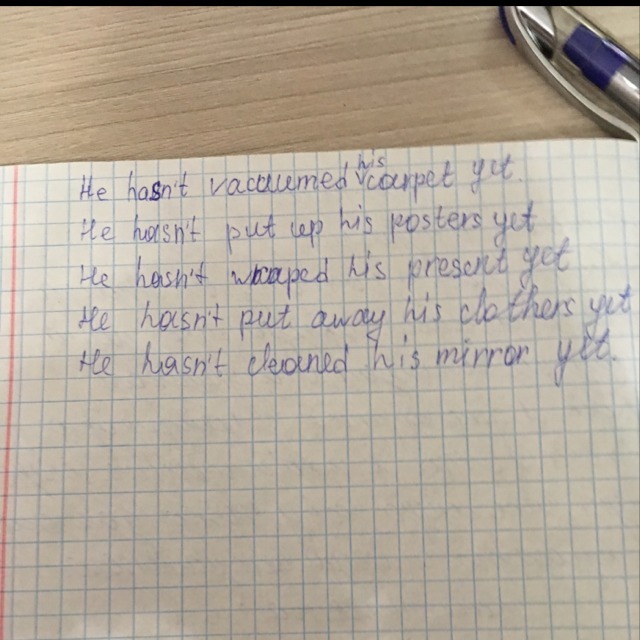 He hasn't vacuumed his carpet yet.
He hasn't put up his posters yet
He hasn't wraped his present yet
He hasn't put away his clothers yet
He hasn't cleaned his mirror yet.